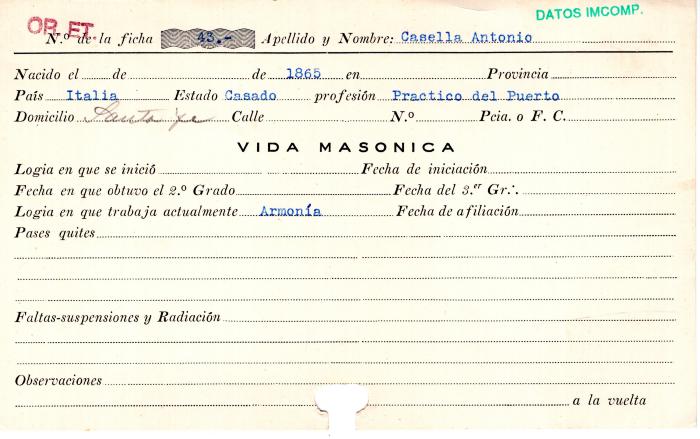 OR ET.
DATOS IMCOMP.
N.º de la ficha 43.- Apellido y Nombre: Casella Antonio
Nacido el de de 1865 en Provincia
País Italia Estado Casado profesión Practico del Puerto
Domicilio Santa Fe Calle N.º Pcia. o F. C.
VIDA MASONICA
Logia en que se inició Fecha de iniciación
Fecha en que obtuvo el 2.º Grado Fecha del 3.er Gr∴
Logia en que trabaja actualmente Armonía Fecha de afiliación
Pases quites
Faltas-suspensiones y Radiación
Observaciones
a la vuelta